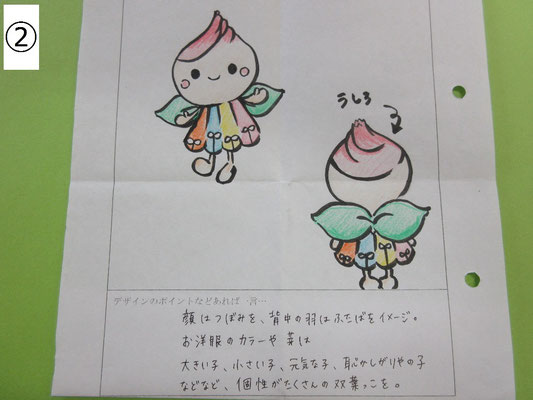 ②
うしろ
デザインのポイントなどあれば一言…
顔はつぼみを、背中の羽はふたばをイメージ。
お洋服のカラーや芽は
大きい子、小さい子、元気な子、恥かしがりやの子
などなど、個性がたくさんの双葉っこを。